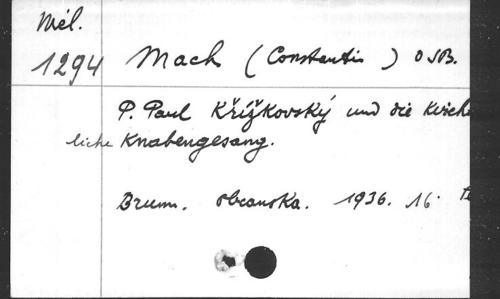 Mél.
1294 Mach (Constantin) OSB.
P. Paul Křížkovský und die kirch
liche Knabengesang.
Brunn. Obcanska. 1936. 16.